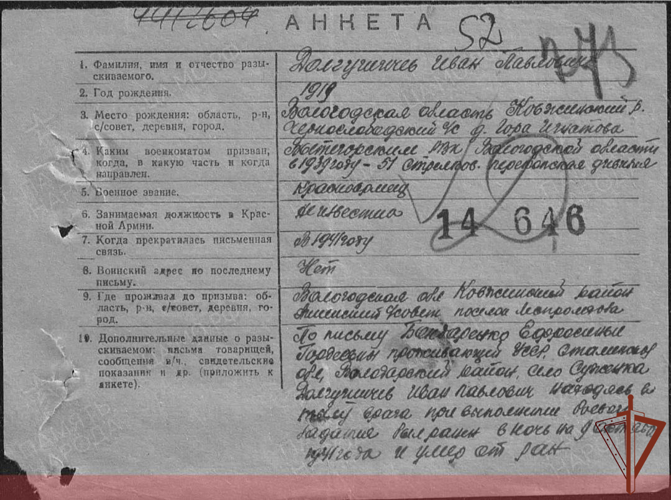 АНКЕТА
52
1. Фамилия, имя и отчество разы-
скиваемого.
Долгушичев Иван Павлович
2. Год рождения.
1919
3. Место рождения: область, р-н,
с/совет, деревня, город.
Вологодская область Ковжинский р.
Чернослободский с/с д. Гора Игнатова
4. Каким военкоматом призван,
когда, в какую часть и когда
направлен.
Вытегорским РВК Вологодской области
в 1939 году – 51 Стрелков. перекопская дивизия
5. Военное звание.
Красноармеец
6. Занимаемая должность в Крас-
ной Армии.
Неизвестно
14 646
7. Когда прекратилась письменная
связь.
В 1941 году
8. Воинский адрес по последнему
письму.
Нет
9. Где проживал до призыва: об-
ласть, р-н, с/совет, деревня, го-
род.
Вологодская обл Ковжинский район
сельсовет поселок
10. Дополнительные данные о разы-
скиваемом: письма товарищей,
сообщения в/ч., свидетельские
показания и др. (приложить к
анкете).
По письму Бондаренко Ефросиньи
Гордеевны проживающий УССР, Сталинская
обл, Володарский район, село
Долгушичев Иван Павлович находясь в
тылу врага при выполнении боевого
задания был ранен в ночь на 9
1941 года и умер от ран